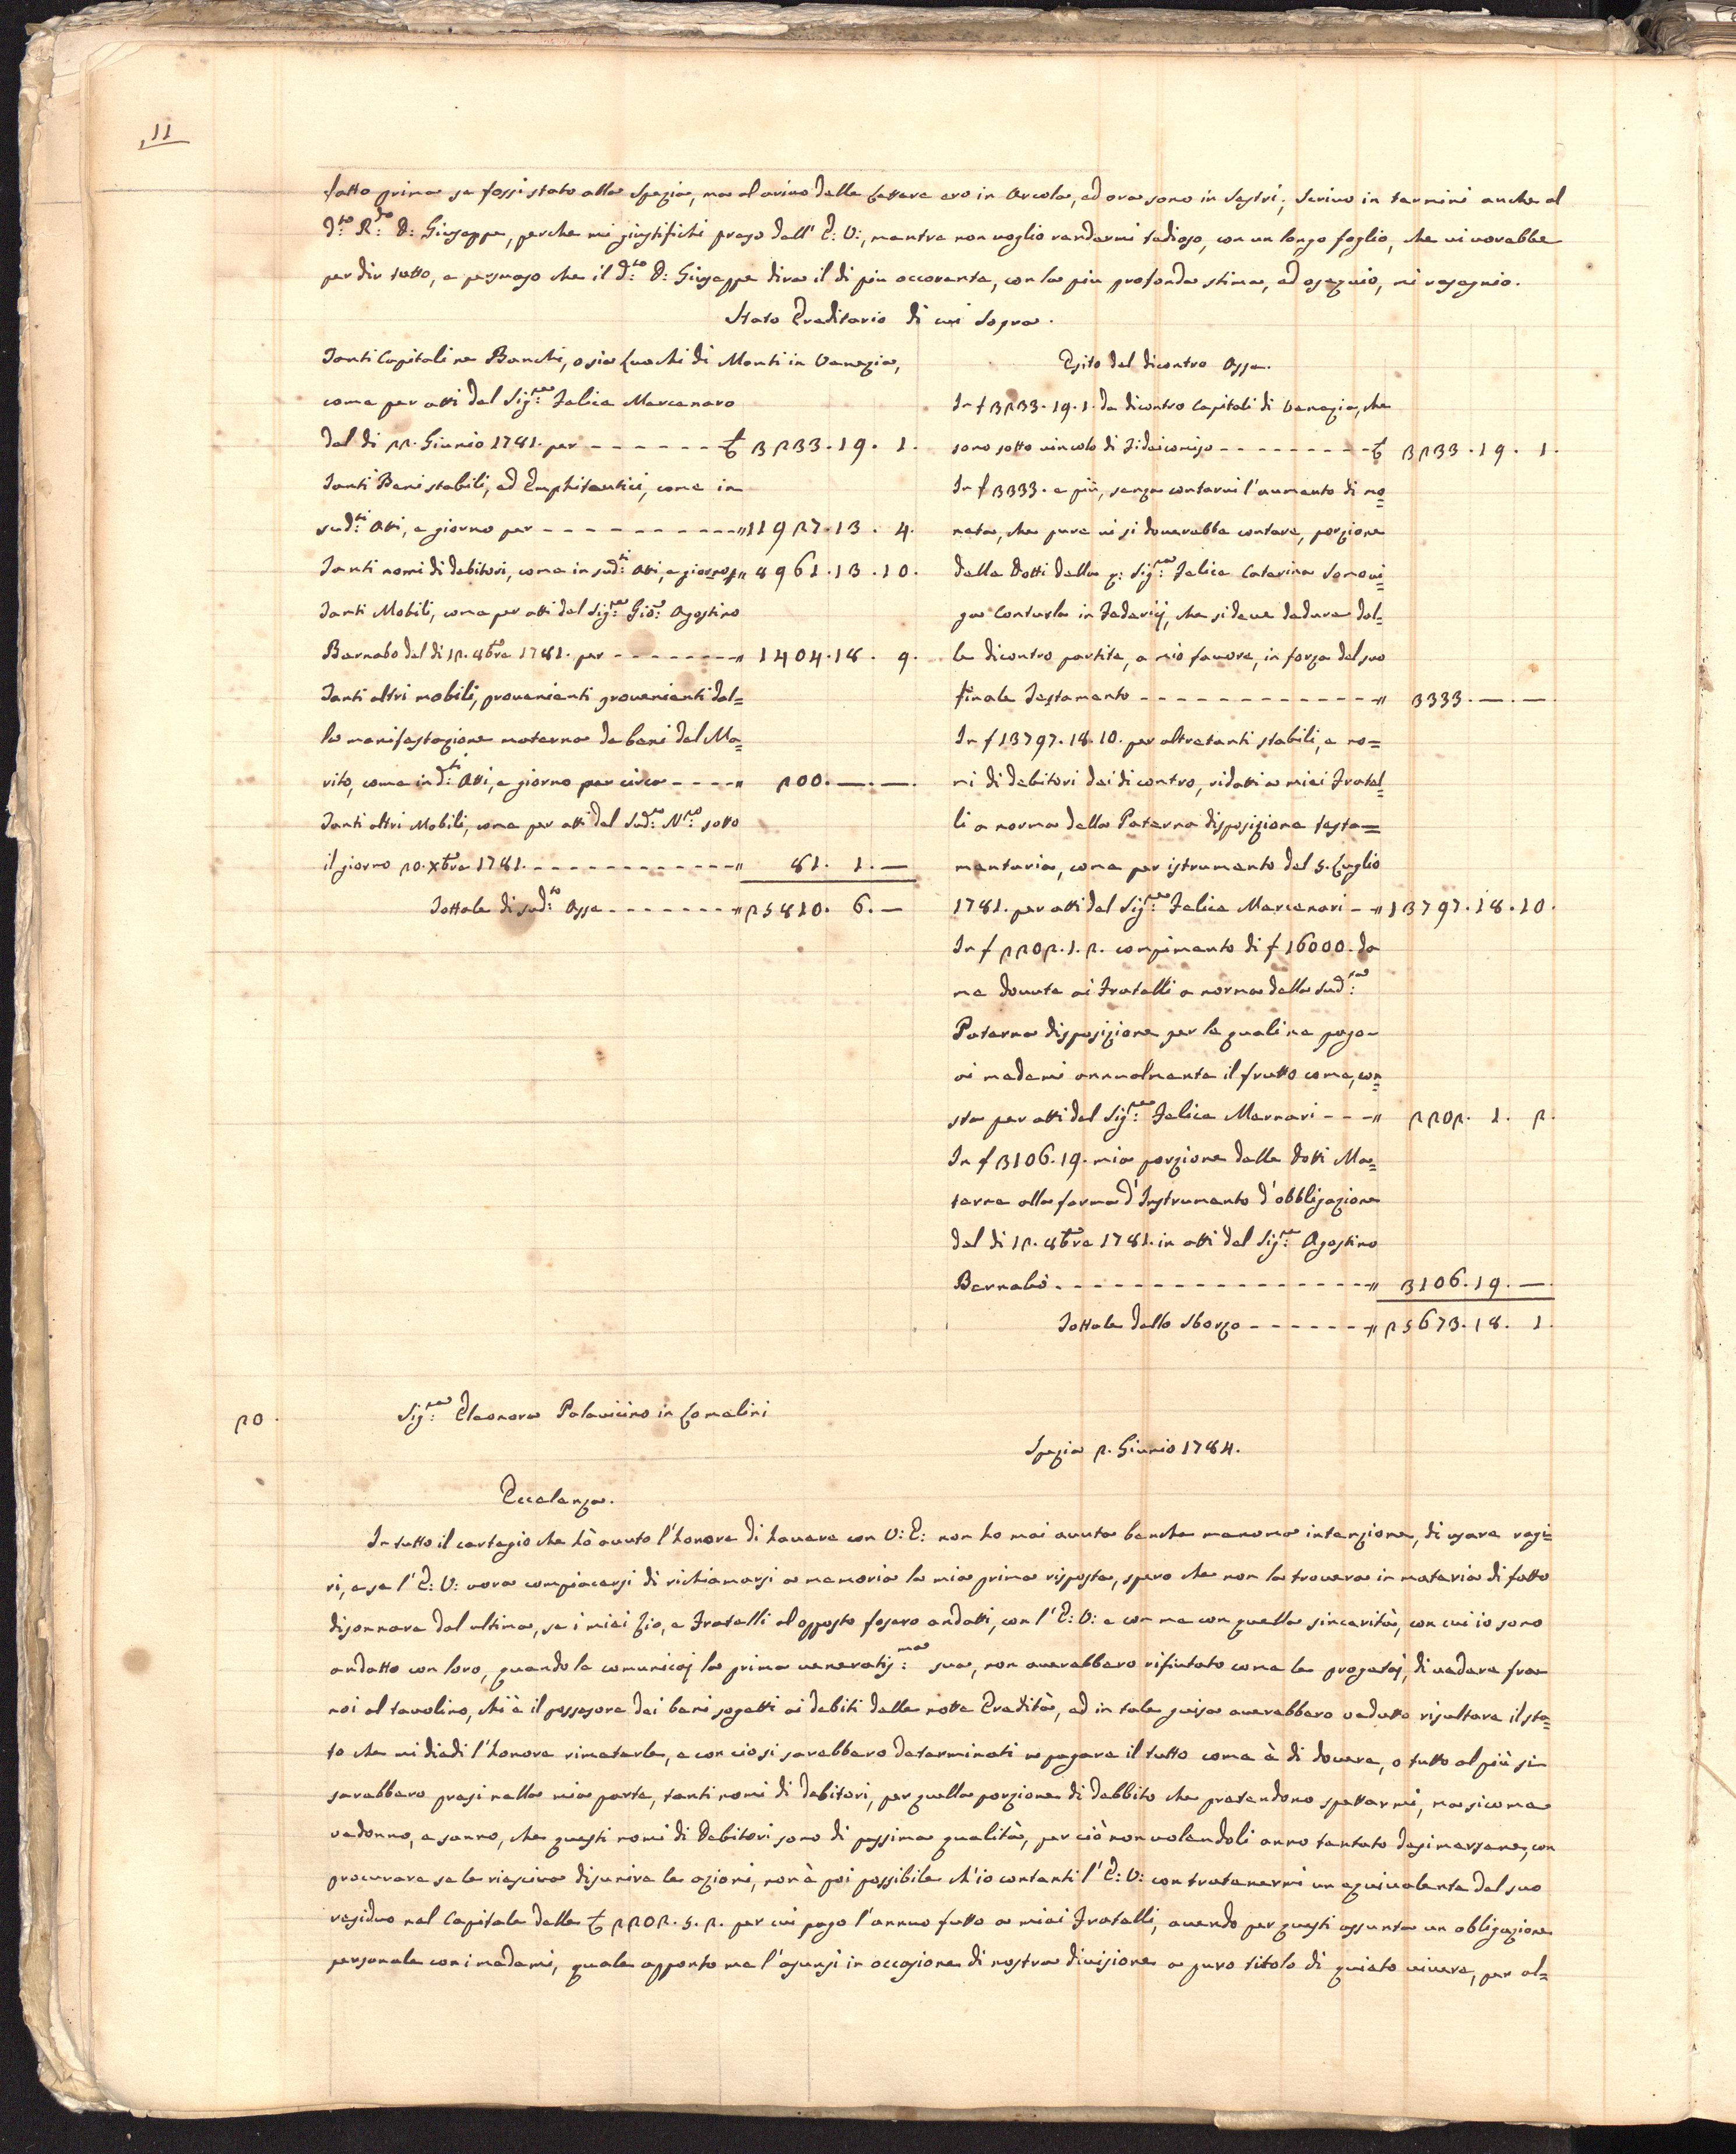 11
fatto prima se fossi stato alla Spezia, ma al arivo delle Lettere ero in Arcola, ed ora sono in Sestri; Scrivo in termini anche al
d:to R:do D: Giuseppe, perche mi giustifichi preso dall' E: V:, mentre non voglio rendermi tedioso, con un longo foglio, che vi vorebbe
per dir tutto, e persuaso che il d:to D: Giuseppe dira il di piu occorente, con la piu profonda stima, ed osequio, mi rasegnio.
Stato Ereditario di cui Sopra.
Tanti Capitali ne Banchi, o sia Luochi di Monti in Venezia,
come per atti del Sig:re Felice Marcenaro
del di 22. Giunio 1781. per - - - - - - - £ 3233. 19. 1.
Tanti Beni stabili, ed Emphiteutici, come in
sud:ti Atti, e giorno per - - - - - - - - - - - " 11927. 13. 4.
Tanti nomi di debitori, come in sud:ti Atti, e giorno p " 8961. 13. 10.
Tanti Mobili, come per atti del Sig:re Gio: Agostino
Barnabo del di 12. 8bre 1781. per - - - - - - - - " 1404. 18. 9.
Tanti altri mobili, provenienti provenienti dal=
la manifestazione materna de beni del Ma=
rito, come in d:ti Atti, e giorno per circa - - - - " 200. —. —.
Tanti altri Mobili, come per atti del Sud:o N:ro sotto
il giorno 20. Xbre 1781. - - - - - - - - - - - - - " 81. 1. —
Tottale di sud:to Asse - - - - - - - - " 25810. 6. —
Esito del dicontro Asse.
In £ 3233. 19. 1. da dicontro Capitali di Venezia, che
sono sotto vincolo di Fideicomiso - - - - - - - - - £ 3233. 19. 1.
In £ 3333. e più, senza contarvi l'aumento di mo=
neta, che pure vi si doverebbe contare, porzione
delle Dotti della q: Sig:ra Felice Caterina Semovi=
go Conturla in Federicj, che si deve dedure dal=
le dicontro partite, a mio favore, in forza del suo
finale Testamento - - - - - - - - - - - - - - " 3333. —. —.
In £ 13797. 18. 10. per altretanti stabili, e no=
mi di debitori dei di contro, ridatti a miei Fratel=
li a norma della Paterna disposizione testa=
mentaria, come per istrumento del 5. Luglio
1781. per atti del Sig:re Felice Marcenari - " 13797. 18. 10.
In £ 2202. 1. 2. compimento di £ 16000. da
me dovute ai Fratelli a norma della Sud:ta
Paterna disposizione per le quali ne pago
ai medemi annualmente il frutto come, con=
sta per atti del Sig:re Felice Marnari - - - " 2202. 1. 2.
In £ 3106. 19. mia porzione delle Dotti Ma=
terne alla forma d'Instrumento d'obbligazione
del di 12. 8bre 1781. in atti del Sig:re Agostino
Bernabò - - - - - - - - - - - - - - - - - - " 3106. 19. —.
Tottale dello Sborzo - - - - - - " 25673. 18. 1.
20.
Sig:ra Eleonora Palavicino in Lomelini
Spezia 2. Giunio 1784.
Eccelenza.
In tutto il cartegio che hò avuto l'honore di havere con V: E: non ho mai avuta benche menoma intenzione, di usare ragi=
ri, e se l'E: V: vora compiacersi di richiamarsi a memoria la mia prima risposta, spero che non la trovera in materia di fatto
disonnare dal ultima, se i miei Zio, e Fratelli al opposto fosero andatti, con l'E: V: e con me con quella sincerità, con cui io sono
andatto con loro, quando le comunicai la prima veneratis:ma sua, non averebbero rifiutato come le progetai, di vedere fra
noi al tavolino, chi è il possesore dei beni sogetti ai debiti delle notte Eredità, ed in tale guisa averebbero vedutto risultare il sta=
to che mi diedi l'honore rimeterle, e con ciò si sarebbero determinati a pagare il tutto come è di dovere, o tutto al più si
sarebbero presi nella mia parte, tanti nomi di debitori, per quella porzione di debbito che pretendono spettarmi, ma sicome
vedonno, e sanno, che questi nomi di Debitori sono di pessima qualità, per ciò non volendoli anno tentato desimersene, con
procurare se le riesciva disunire le azioni, non è poi possibile ch'io contenti l'E: V: con tratenermi un equivalente del suo
residuo nel Capitale delle £ 2202. 5. 2. per cui pago l'annuo frutto a miei Fratelli, avendo per questi assunta un obligazione
personale con i medemi, quale apponto me l'asunsi in occasione di nostra divisione a puro titolo di quieto vivere, per al=